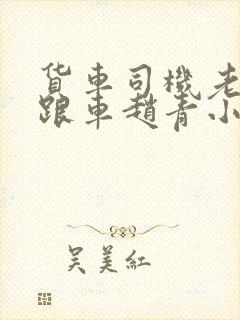 货车司機老
跟車趙青小
吴美紅